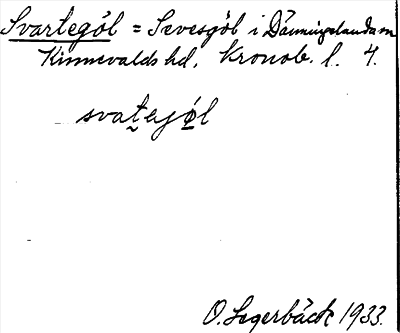 Svartegöl = Sevesgöl i Dänningelanda m
Kinnevalds hd, Kronob. l. 4.
svat̰ejø̲l
O. Segerbäck 1933.